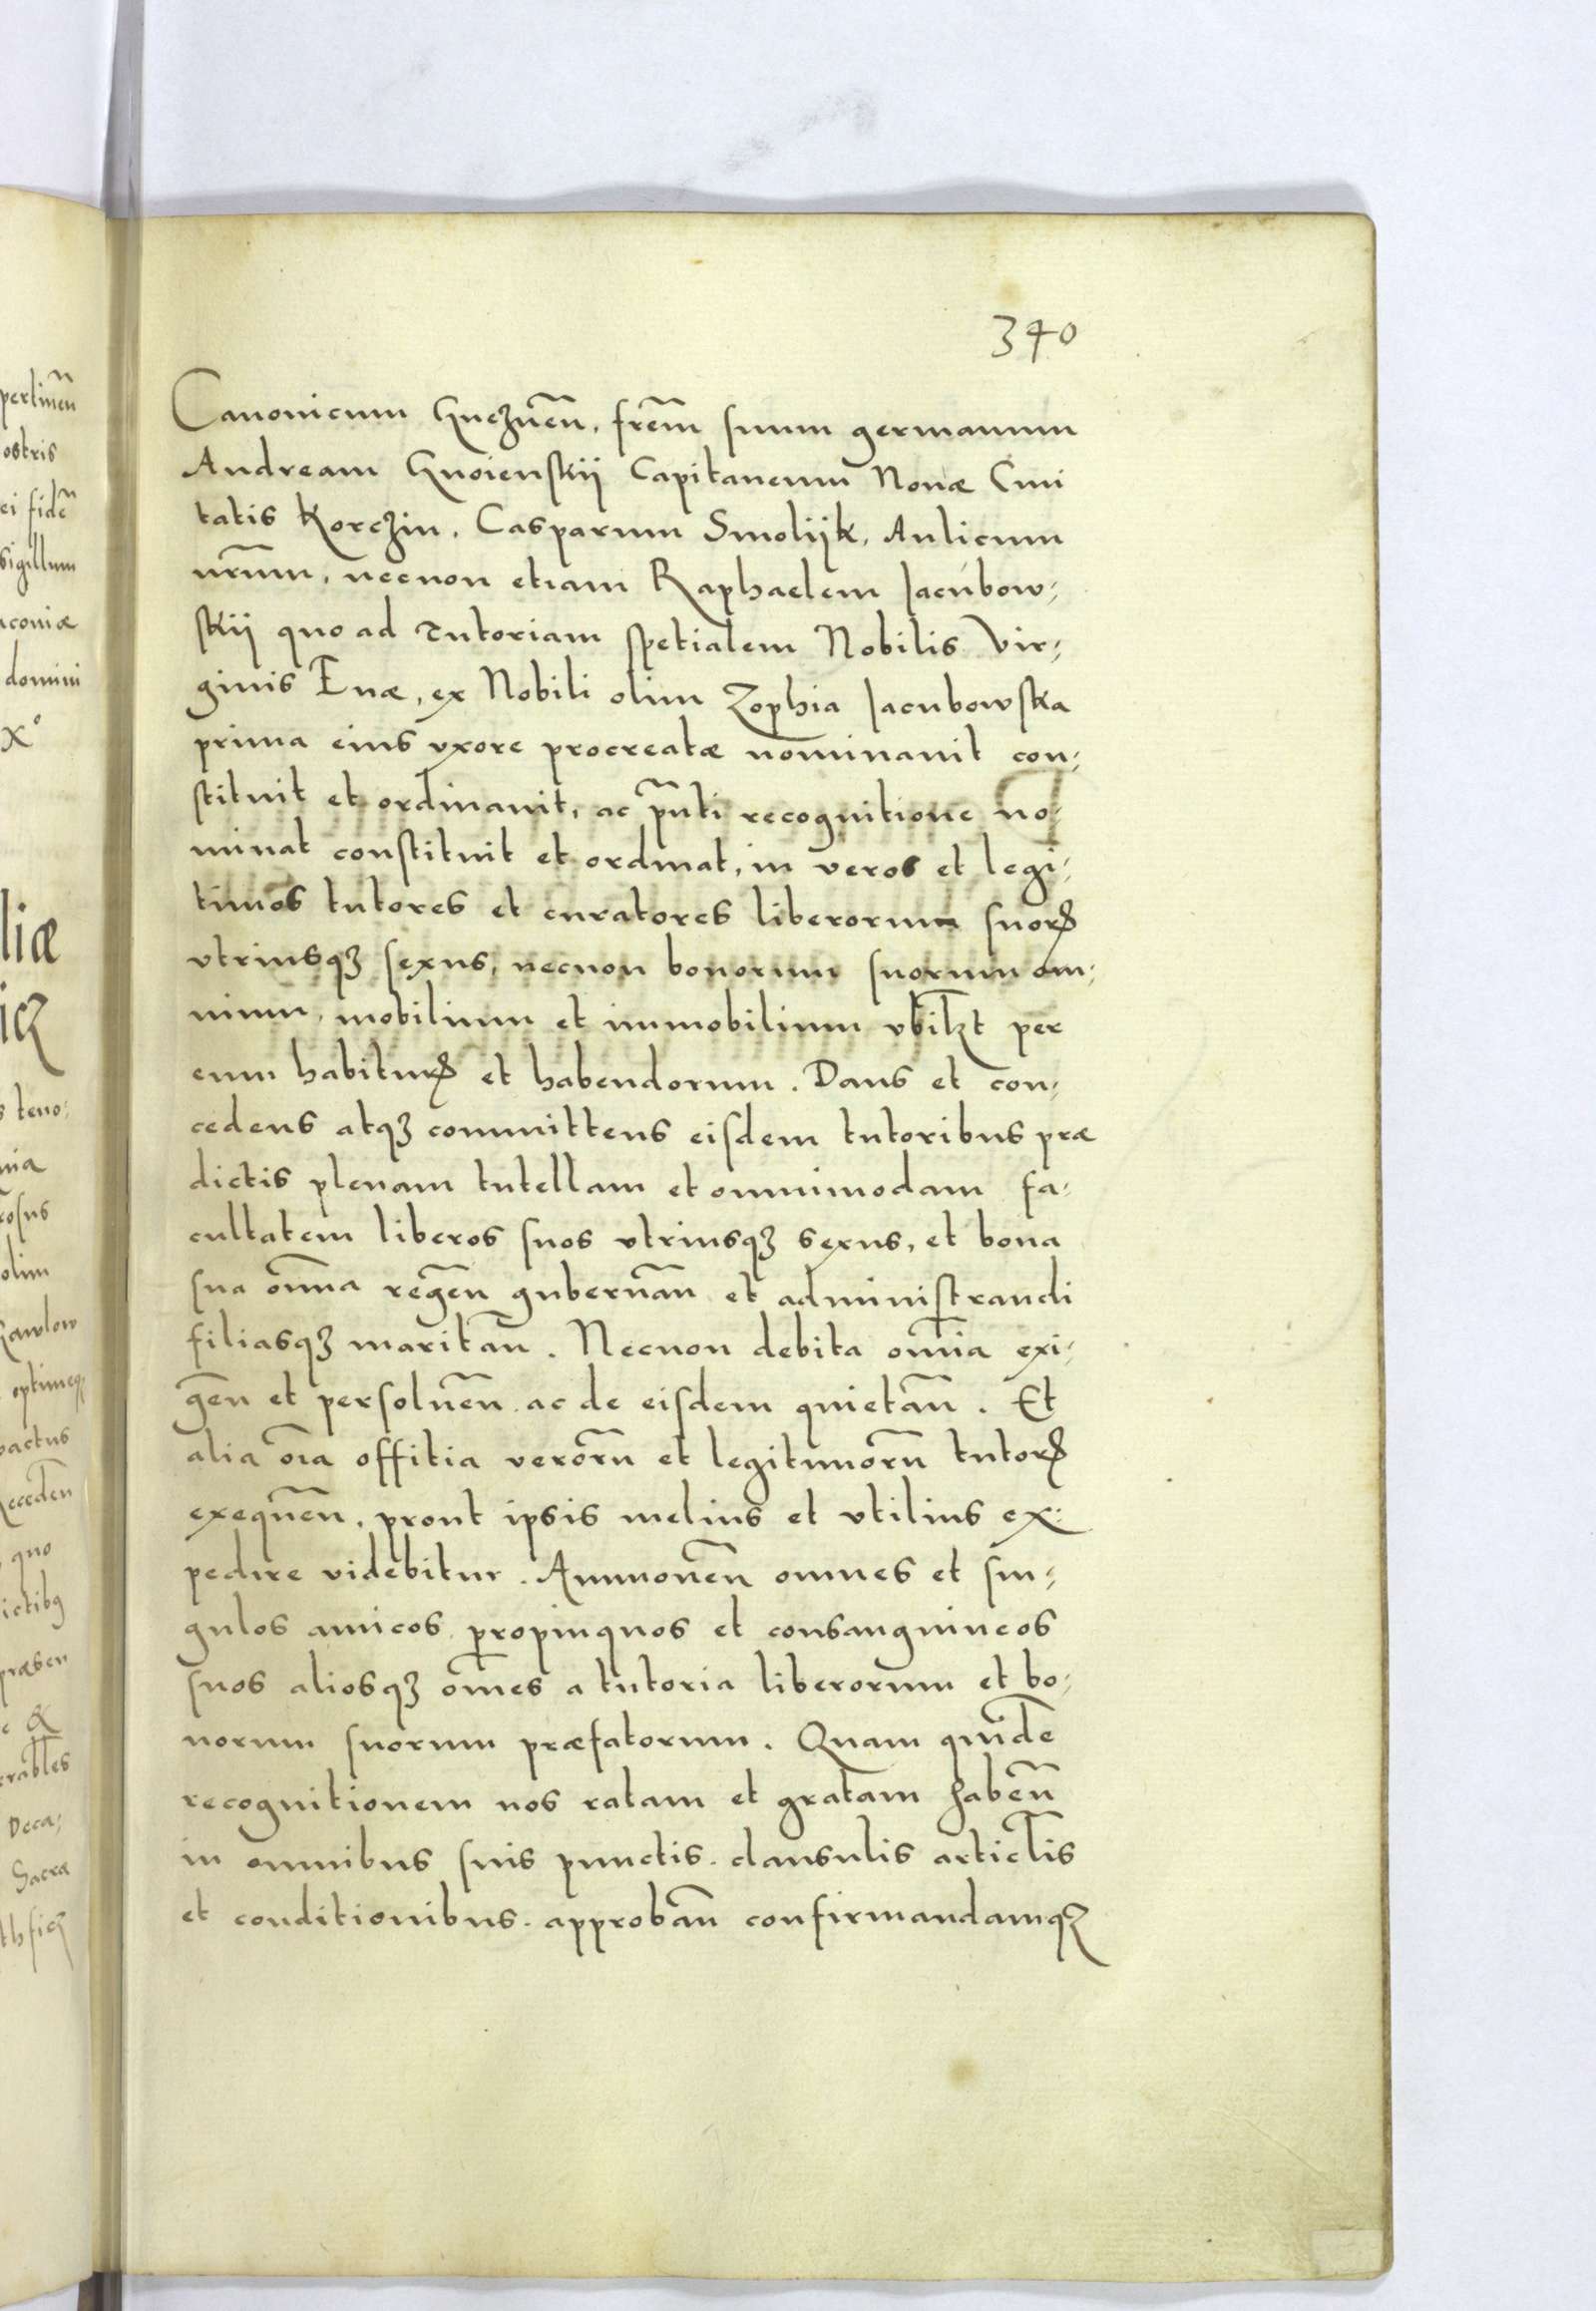 340
Canonicum Gnezneñ, frēm suum germanum
Andream Gnoienskij Capitaneum Nouæ Ciui
tatis Korczin, Casparum Smolijk, Aulicum
nr̃um, necnon etiam Raphaelem Iacúbow-
skij quo ad Tutoriam spetialem Nobilis Vir-
ginis Euæ, ex Nobili olim Zophia Iacubowska
prima eius vxore procreatæ nominauit con-
stituit et ordinauit, ac p̃nti recognitione no-
minat constituit et ordinat, in veros et legi-
timos tutores et curatores liberorum suorꝝ
vtriusqꝫ sexus, necnon bonorum suorum om-
nium, mobilium et immobilium vbilꝫt per
eum habiturꝝ et habendorum. Dans et con-
cedens atqꝫ committens eisdem tutoribus præ
dictis plenam tutellam et omnimodam fa-
cultatem liberos suos vtriusqꝫ sexus, et bona
sua om̃ia regeñ gubernañ et administrandi
filiasqꝫ maritañ. Necnon debita om̃ia exi-
geñ et persolueñ ac de eisdem quietañ. Et
alia oĩa offitia verorũ et legitimorũ tutorꝝ
exequeñ, prout ipsis melius et vtilius ex-
pedire videbitur. Ammoueñ omnes et sin-
gulos amicos propinquos et consanguineos
suos aliosqꝫ om̃es a tutoria liberorum et bo-
norum suorum præfatorum. Quam quidē
recognitionem nos ratam et gratam habeñ
in omnibus suis punctis clausulis articl̃is
et conditionibus approbañ confirmandamqꝫ
pertineñ
ostris
ei fidē
sigillum
aconiæ
domini
X°
liæ
icꝫ
s teno-
nia
rosus
olim
Rawlow
optimeqꝫ
pactus
Recedeñ
quo
ictibꝰ
præsen
e &
erabl̃es
Deca-
Sacræ
thficꝫ